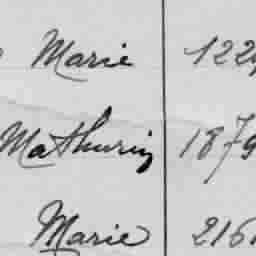 Marie 122
Mathurin 1879
Marie 216